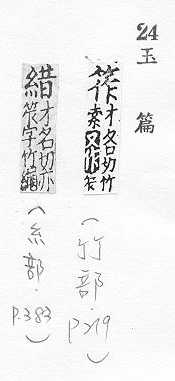 24 玉篇
筰 才各切竹索又作笮
(竹部. P.219)
䋏 才各切亦笮字竹繩
(糸部. P.383)